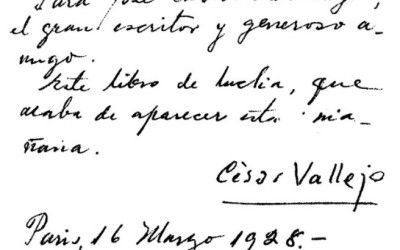 Para José
el gran escritor y generoso a-
migo.
Este libro de lucha, que
acaba de aparecer esta ma-
ñana.
César Vallejo
París, 16 Marzo 1928.-